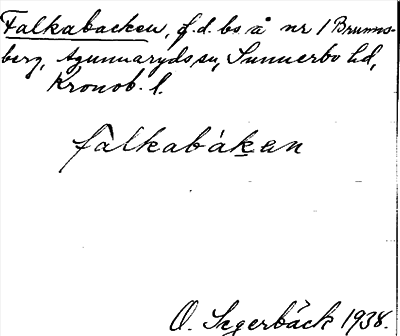 Falkabacken, f.d. bs å nr 1 Brunns-
berg, Agunnaryds sn, Sunnerbo hd,
Kronob. l.
fàlkabákan
O. Segerbäck 1938.